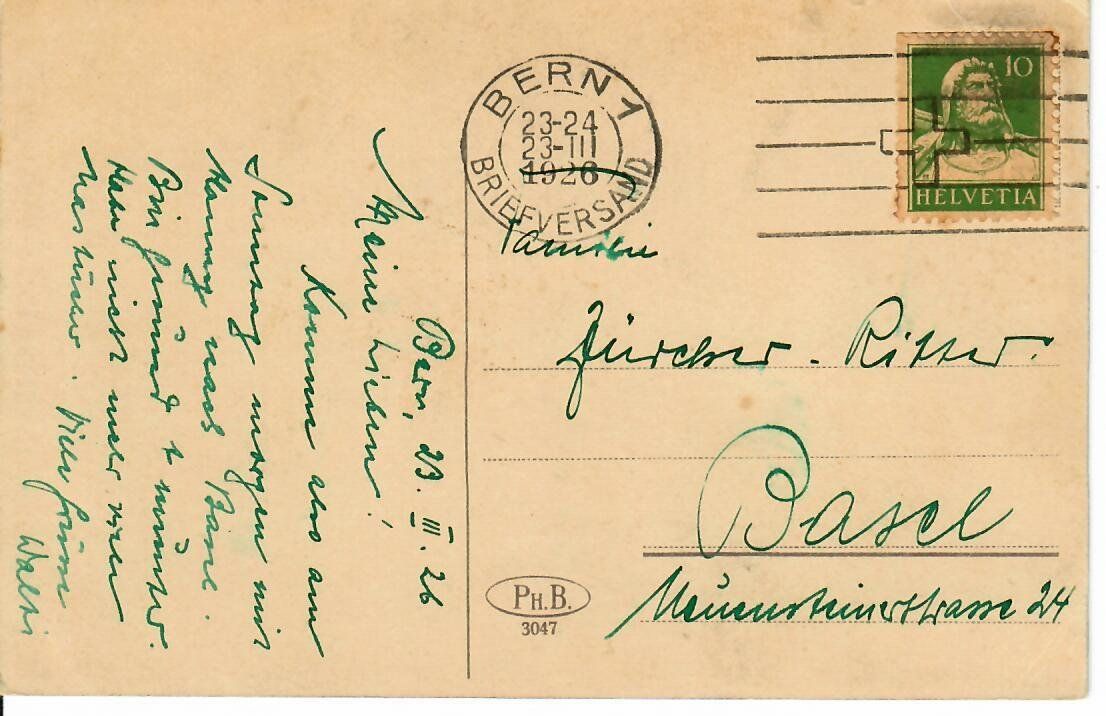 BERN 1
23-24
23-III
1926
BRIEFVERSAND
10
HELVETIA
Bern, 23. III. 26
Meine Lieben!
Komme also am
Sonntag morgen mit
nach Basel.
Bin gesund & munter.
Habe nicht mehr viel
Viele Grüsse
Walti
Familie
Zürcher - Ritter.
Basel
Neuensteinerstrasse 24
PH.B.
3047